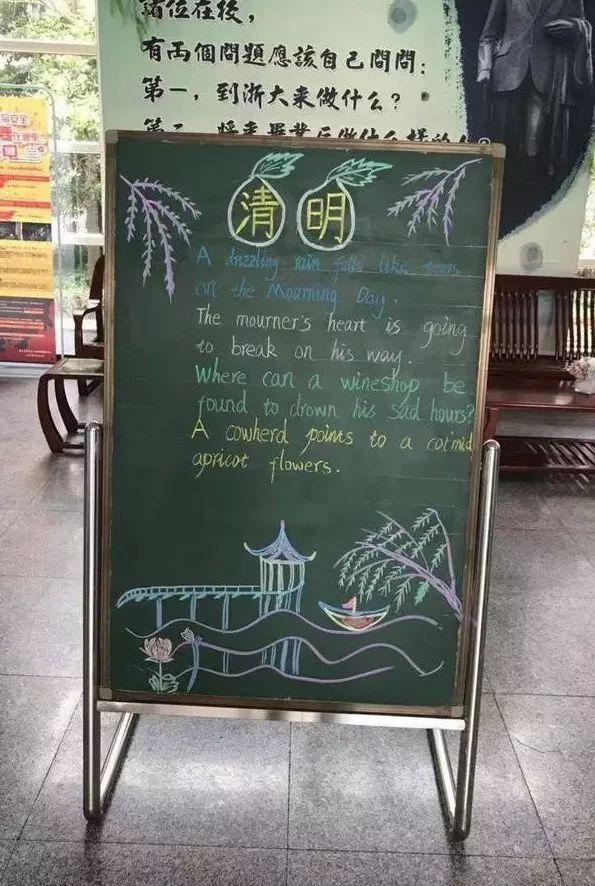 諸位在後，
有兩個問題應該自己問問：
第一，到浙大来做什么？
第二，
清明
A drizzling rain falls like tears
on the Mourning Day.
The mourner's heart is going
to break on his way.
Where can a wineshop be
found to drown his sad hours?
A cowherd points to a cot mid
apricot flowers.